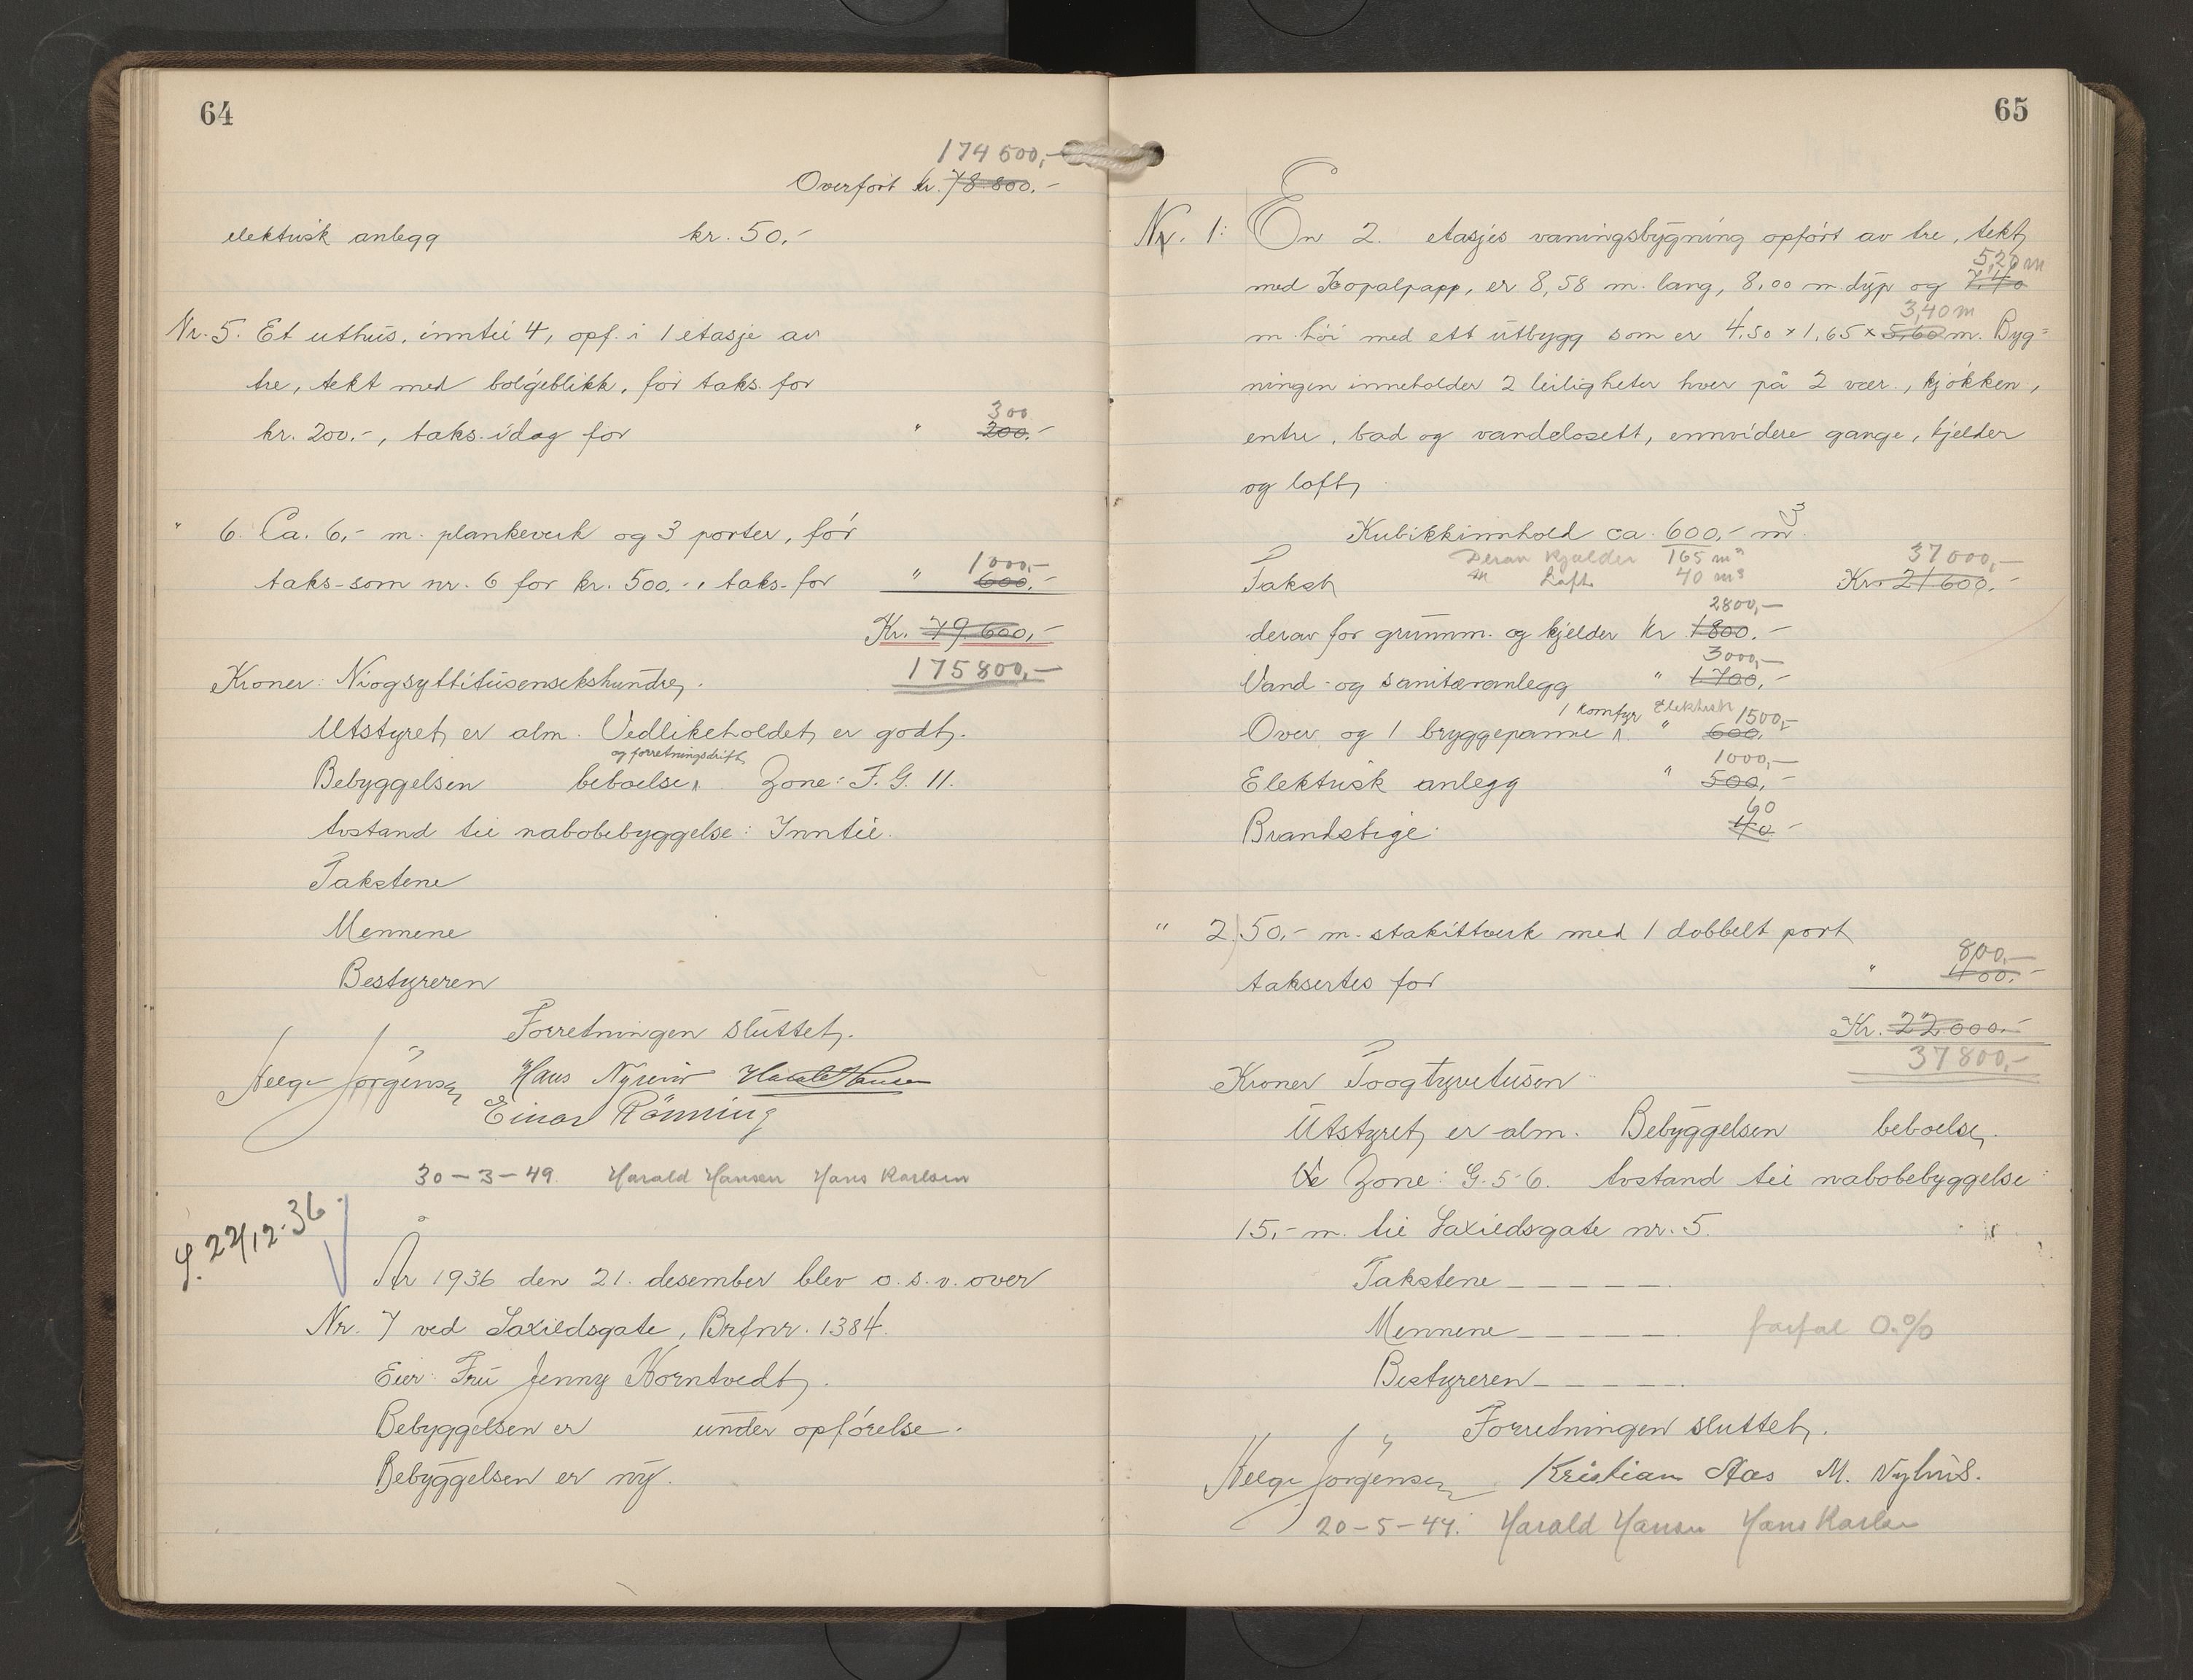 64
174 500,-
Overført kr. 78.800.-
elektrisk anlegg kr. 50.-
Nr. 5. Et uthus, inntil 4, opf. i 1 etasje av
tre, tekt med bølgeblikk, før taks. for
300
kr. 200.-, taks. idag for " 200.-
" 6. Ca. 6,- m. plankeverk og 3 porter, før
1000,-
taks. som nr. 6 for kr. 500.-, taks. for " 600.-
Kr. 79.600,-
175800,-
Kroner: Niogsyttitusensekshundre.
Utstyret er alm. Vedlikeholdet er godt.
og forretningsdrift
Bebyggelsen beboelse Zone: F. G. 11.
Avstand til nabobebyggelse: Inntil.
Takstene
Mennene
Bestyreren
Forretningen sluttet.
Helge Jørgensen Hans Harald Hansen
Einar Rønning
30-3-49. Harald Hansen Hans Karlsen
22/12-36
År 1936 den 21. desember blev o. s. v. over
Nr. 7 ved Saxildsgate, Brfnr. 1384.
Eier: Fru Jenny Korntvedt.
Bebyggelsen er under opførelse.
Bebyggelsen er ny.
65
Nr. 1: En 2. etasjes vaningsbygning opført av tre, tekt
5,20 m
med Kopalpapp, er 8,58 m. lang, 8,00 m. dyp og 7.40
3,40 m
m. høi med ett utbygg som er 4,50 × 1,65 × 5,60 m. Byg=
ningen inneholder 2 leiligheter hver på 2 vær., kjøkken,
entre, bad og vandclosett, ennvidere gange, kjelder
og loft,
Kubikkinnhold ca. 600,- m³
Derav Kjælder 165 m³ 37000,-
Takst Loft 40 m³ Kr. 21600.-
2800,-
derav for grunnm. og kjelder kr 1800.-
3000,-
Vand- og sanitæranlegg " 1.700,-
1 Komfyr Elektrisk 1500,-
Over og 1 bryggepanne " 600,-
1000,-
Elektrisk anlegg " 500,-
60
Brandstige: 40 -
" 2) 50,- m. stakittverk med 1 dobbelt port
800,-
taksertes for " 400.-
Kr. 22.000.-
37800,-
Kroner Toogtyvetusen
Utstyret er alm. Bebyggelsen beboelse.
Zone: G. 5-6. Avstand til nabobebyggelse:
15,- m. til Saxildsgate nr. 5.
Takstene - - - - -
Mennene - - - - - forfal 0.%
Bestyreren - - - - -
Forretningen sluttet.
Helge Jørgensen Kristian Aas M. Nyhus.
20-5-44. Harald Hansen Hans Karlsen